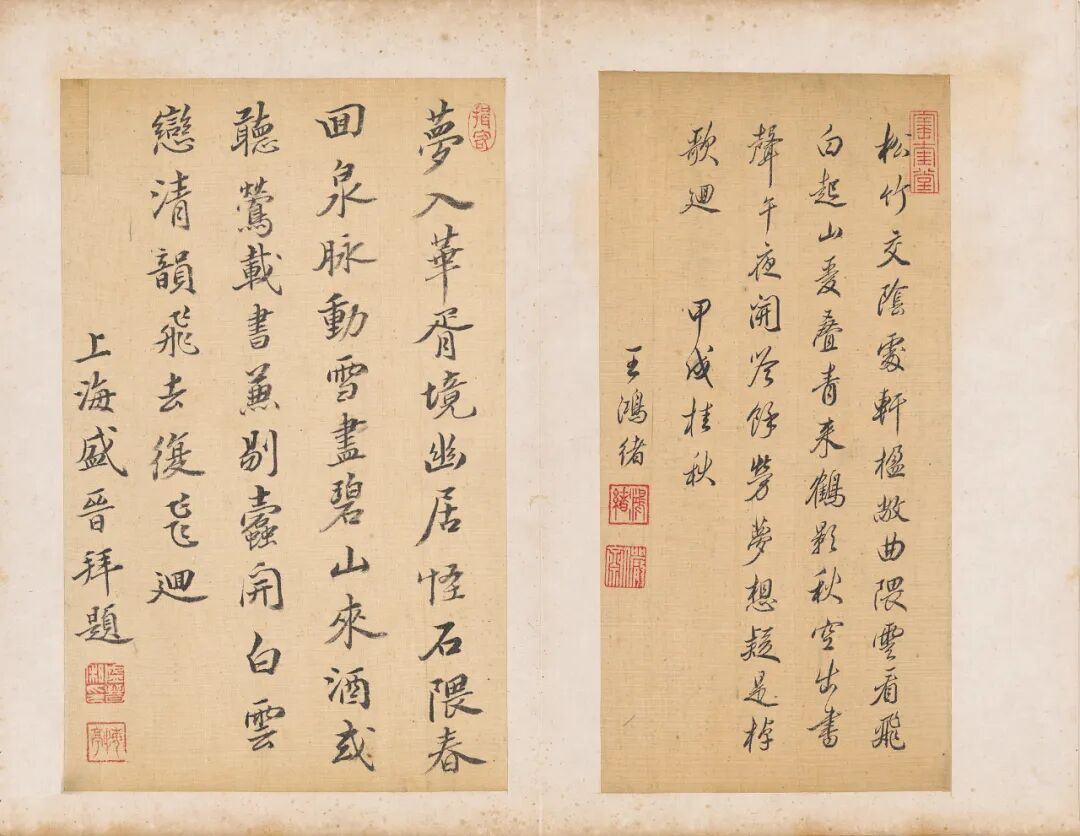 松竹交陰處軒楹敞曲隈雲看飛
白起山愛疊青來鶴影秋空出書
聲午夜開餘勞夢想疑是棹
歌廻 甲戌桂秋
王鴻緒
夢入華胥境幽居怪石隈春
囬泉脉動雪盡碧山來酒或
聽鶯載書兼剔蠹開白雲
戀清韻飛去復飞廻
上海盛晉拜題